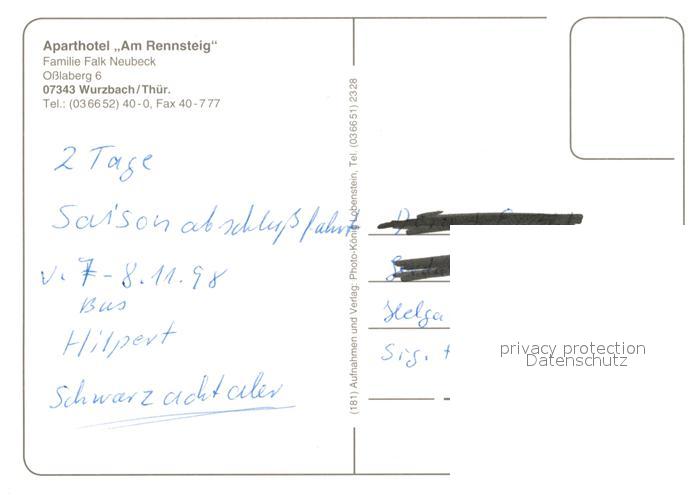 Aparthotel „Am Rennsteig“
Familie Falk Neubeck
Oßlaberg 6
07343 Wurzbach/Thür.
Tel.: (036652) 40-0, Fax 40-777
2 Tage
Saisonabschlußfahrt
v. 7-8.11.98
Bus
Hilpert
Schwarzachtaler
(181) Aufnahmen und Verlag: Photo-König, Lobenstein, Tel. (036651) 2328
Helga
Sig.
privacy protection
Datenschutz